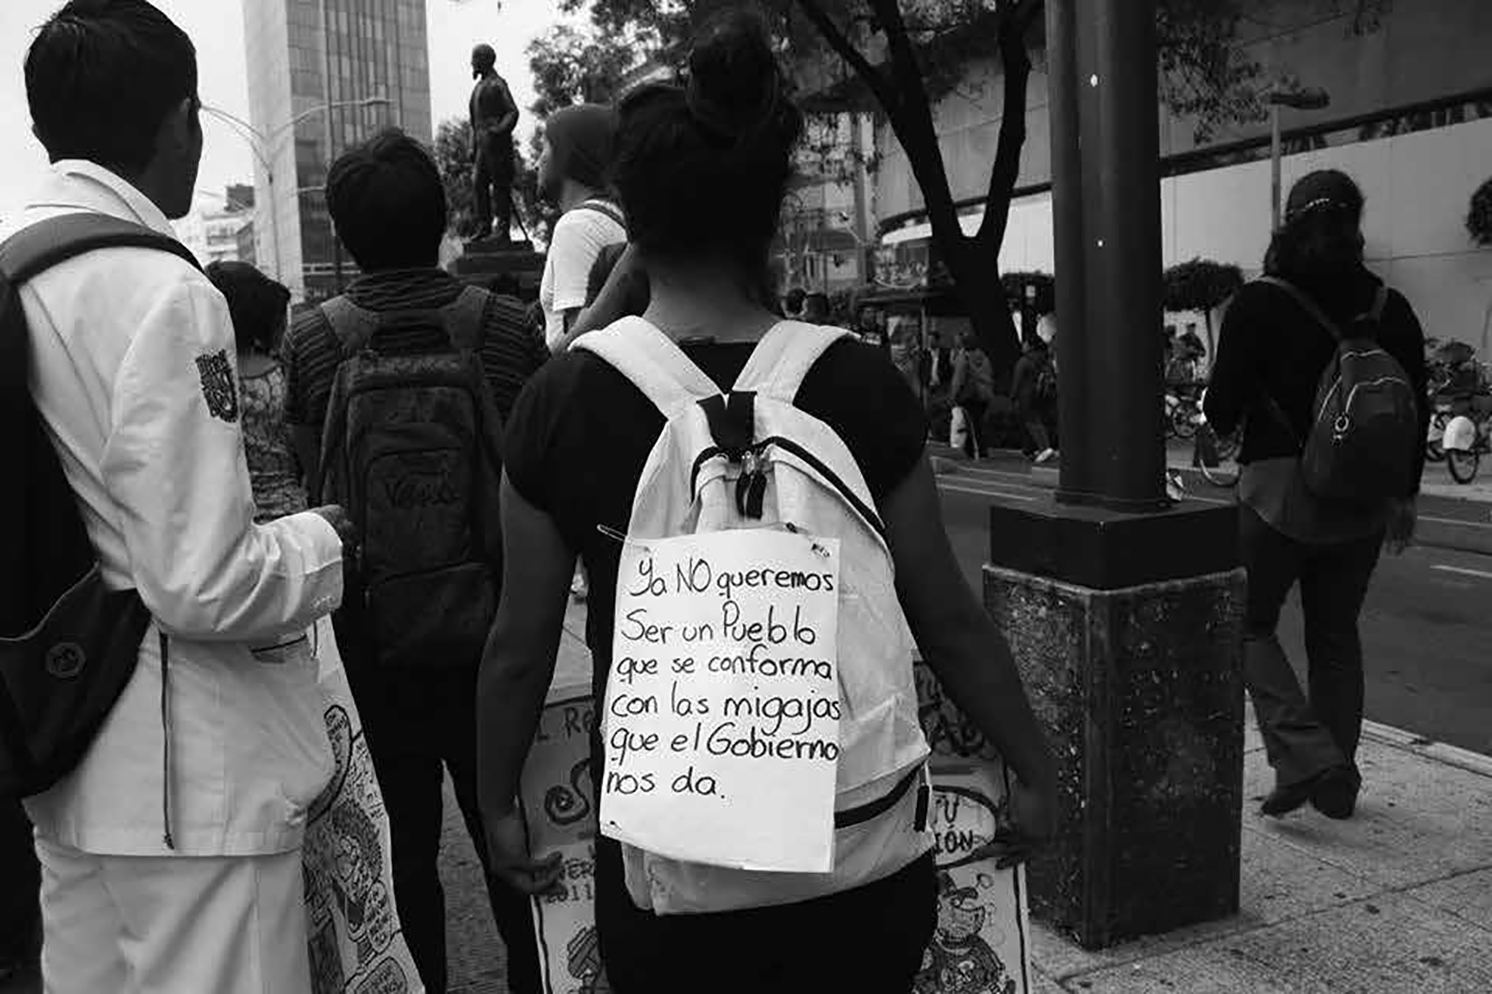 Ya NO queremos
Ser un Pueblo
que se conforma
con las migajas
que el Gobierno
nos da.
2011
TU
IÓN